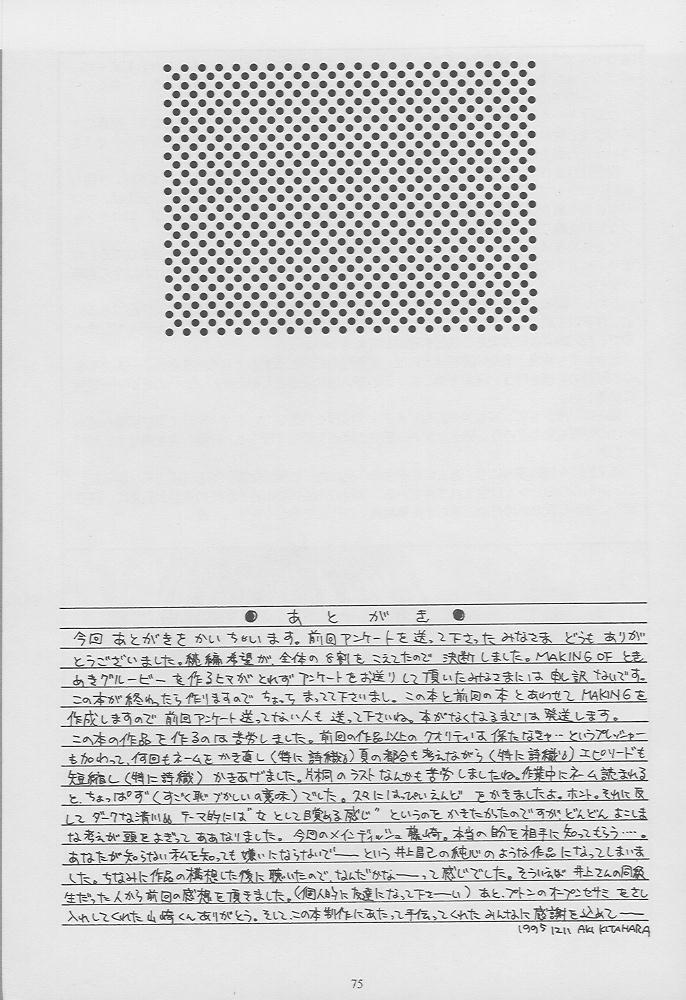 ● あとがき ●
今回 あとがきを かいちゃいます。前回アンケートを送って下さったみなさま どうも ありが
とうございました。続編希望が、全体の8割を こえてたので 決断しました。MAKING OF とき
めきグルービー を作るヒマがとれずアンケートをお送りして頂いたみなさまには申し訳ないです。
この本が終わったら作りますので ちょっち まってて下さいまし。この本と前回の本とあわせて MAKINGを
作成しますので 前回アンケート送ってない人も 送って下さいね。本がなくなるまでは発送します。
この本の作品を作るのは苦労しました。前回の作品以上の クオリティは 保たなきゃーというプレッシャー
も加わって、何回もネームを かき直し(特に 詩織)頁の都合も考えながら(特に詩織)エピソードも
短縮し(特に詩織) かきあげました。片桐のラストなんかも苦労しましたね。作業中にネーム読まれる
と、ちょっぱず(すごく恥ずかしいの意味)でした。 はっぴいえんど をかきましたよ。ホント。それに反
して ダークな清川 テーマ的には"女として目覚める感じ"というのをかきたかったのですがどんどん よこしま
な考えが頭をよぎって ああなりました。今回のメインディッシュ藤崎。本当の自分を相手に知ってもらう‥‥。
あなたが知らない私を知っても 嫌いにならないで── という 井上昌己の純心のような作品になってしまいま
した。ちなみに作品の構想した後に聴いたので、なんだかなー──って感じでした。そういえば 井上さんの同級
生だった人から前回の感想を頂きました。(個人的に友達になって下さーい) あと、プトンのオープンセサミ をさし
入れしてくれた山崎くんありがとう。そして、この本制作にあたって手伝ってくれた みんなに 感謝を込めて──
1995 12.11 AKI KITAHARA
75